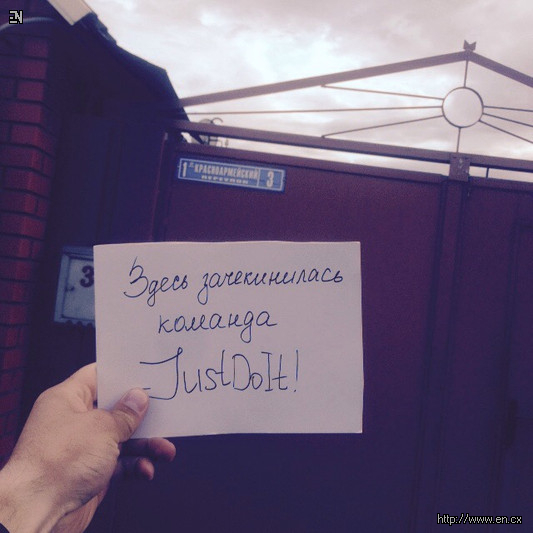 EN
1й КРАСНОАРМЕЙСКИЙ
ПЕРЕУЛОК
3
3
Здесь зачекинилась
команда
JustDoIt!
http://www.en.cx